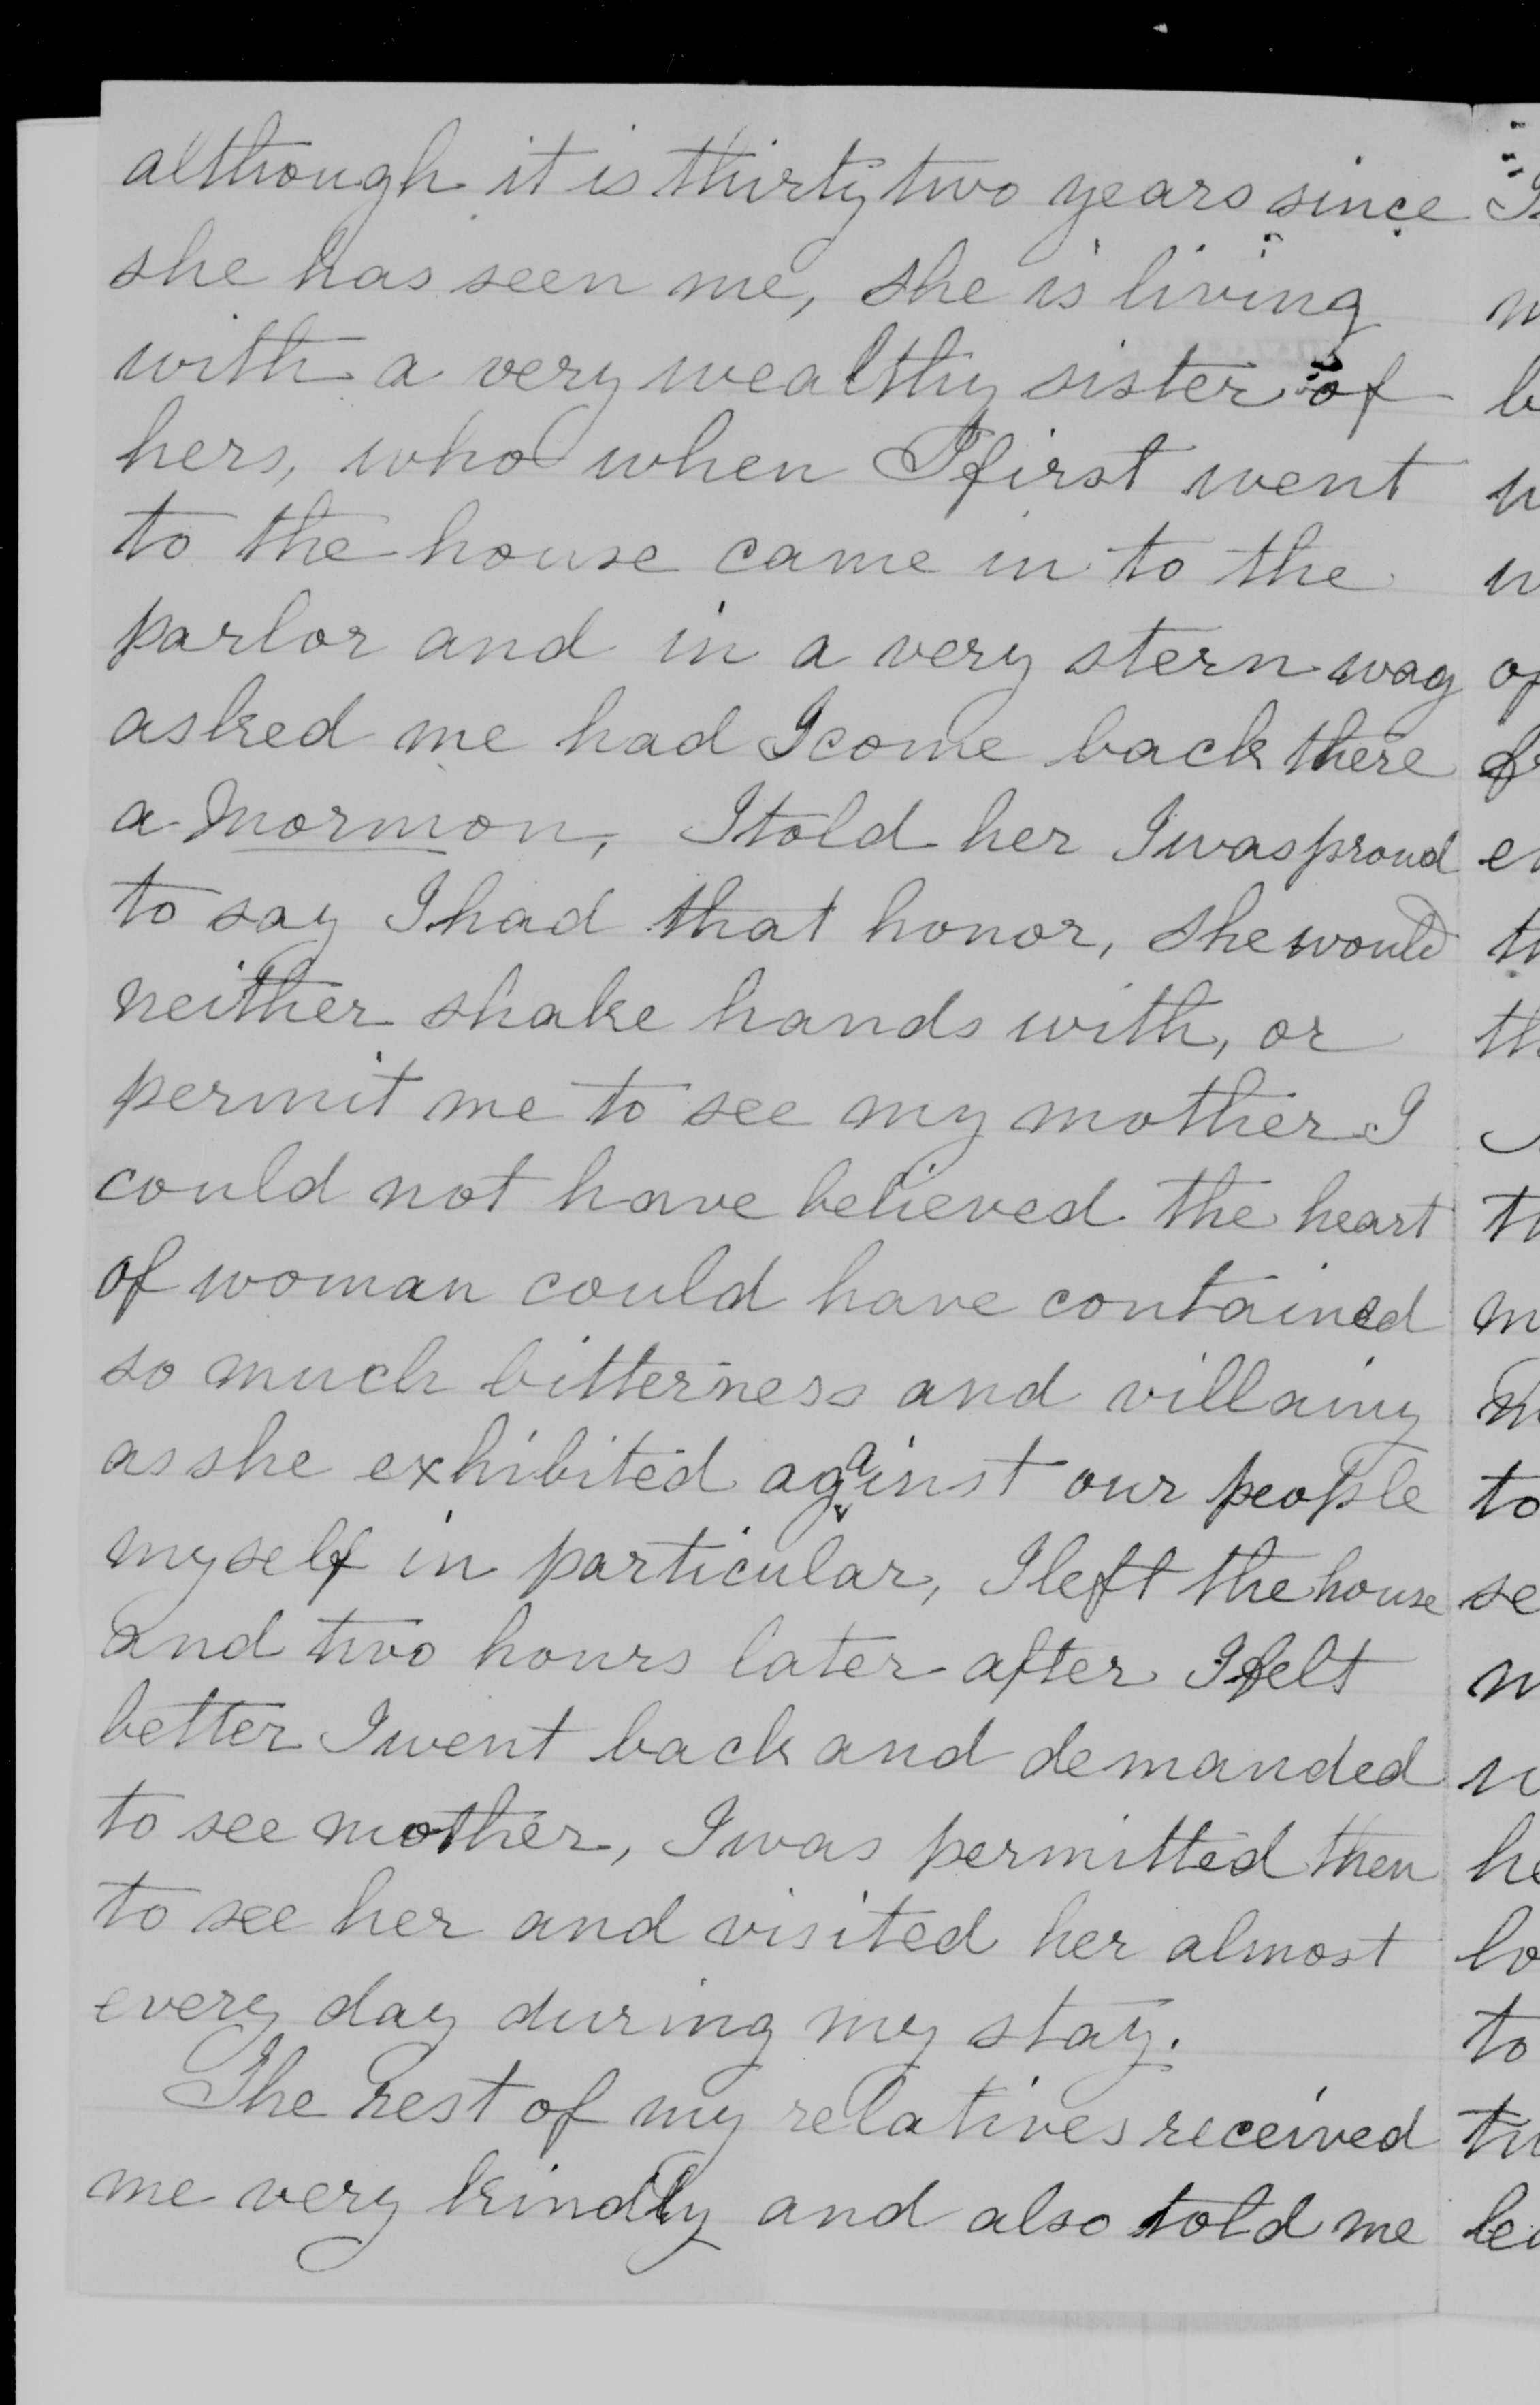 although it is thirty two years since
she has seen me, she is living
with a very wealthy sister of
hers, who when I first went
to the house came in to the
parlor and in a very stern way
asked me had I come back there
a Mormon, I told her I was proud
to say I had that honor, she would
neither shake hands with, or
permit me to see my mother I
could not have believed the heart
of woman could have contained
so much bitterness and villainy
as she exhibited against our people
myself in particular, I left the house
and two hours later after I felt
better I went back and demanded
to see mother, I was permitted then
to see her and visited her almost
every day during my stay.
The rest of my relatives received
me very kindly and also told me